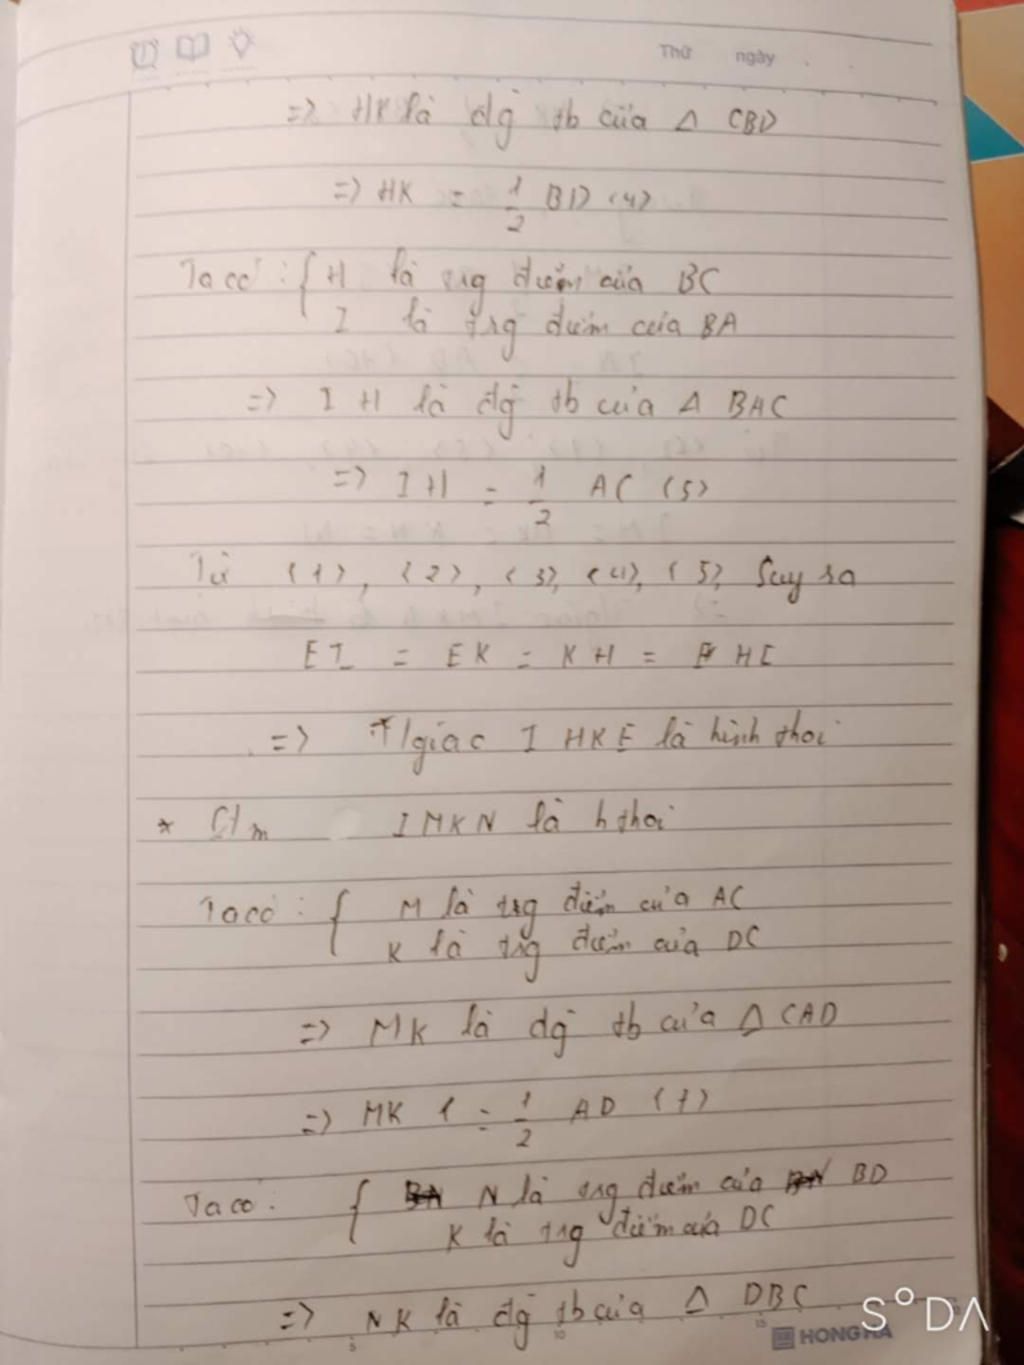 Thứ ngày
=> HK là đg tb của Δ CBD
=> HK = 1/2 BD (4)
Ta có : { H là trg điểm của BC
I là trg điểm của BA
=> IH là đg tb của Δ BAC
=> IH = 1/2 AC (5)
Từ (1), (2), (3), (4), (5) Suy ra
EI = EK = KH = HI
=> T/giác IHKE là hình thoi
* C/m IMKN là h thoi
Ta có : { M là trg điểm của AC
K là trg điểm của DC
=> MK là đg tb của Δ CAD
=> MK = 1/2 AD (7)
Ta có : { N là trg điểm của BD
K là trg điểm của DC
=> NK là đg tb của Δ DBC
S°DA
HONG HA